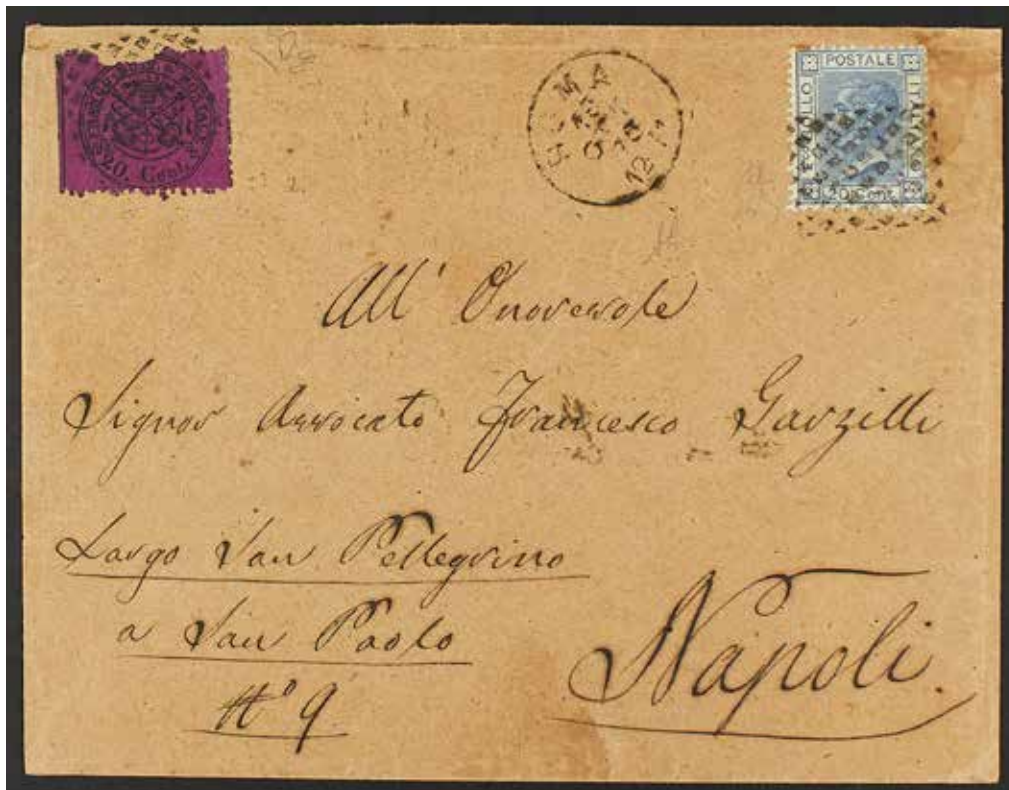 20. Cent.
ROMA
73
12 M
POSTALE
BOLLO
ITALIANO
20 Cent.
All' Onorevole
Signor Avvocato Francesco Garzilli
Largo San Pellegrino
a San Paolo
No 9
Napoli.